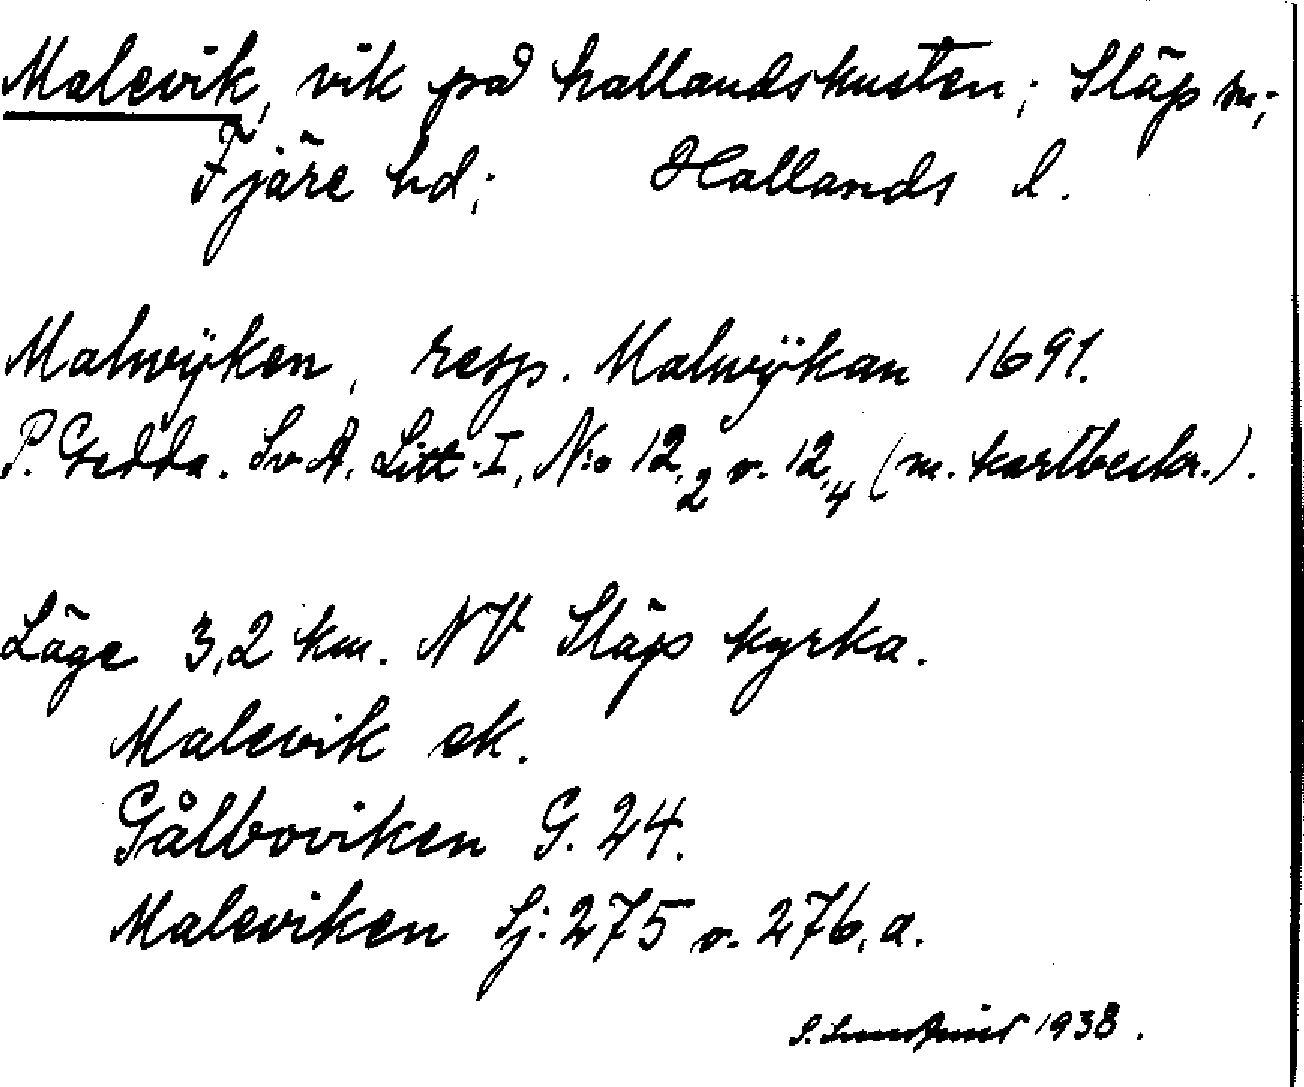 Malevik, vik på hallandskusten; Släp sn;
Fjäre hd; Hallands l.
Malwÿken, resp. Malwÿkan 1691.
P. Gedda. Sv A. Litt. I, N:o 12,2 o. 12,4 (m. kartbeskr.).
Läge 3,2 km. NV Släp kyrka.
Malevik ek.
Gålboviken G. 24.
Maleviken Sj: 275 o. 276, a.
S. 1938.